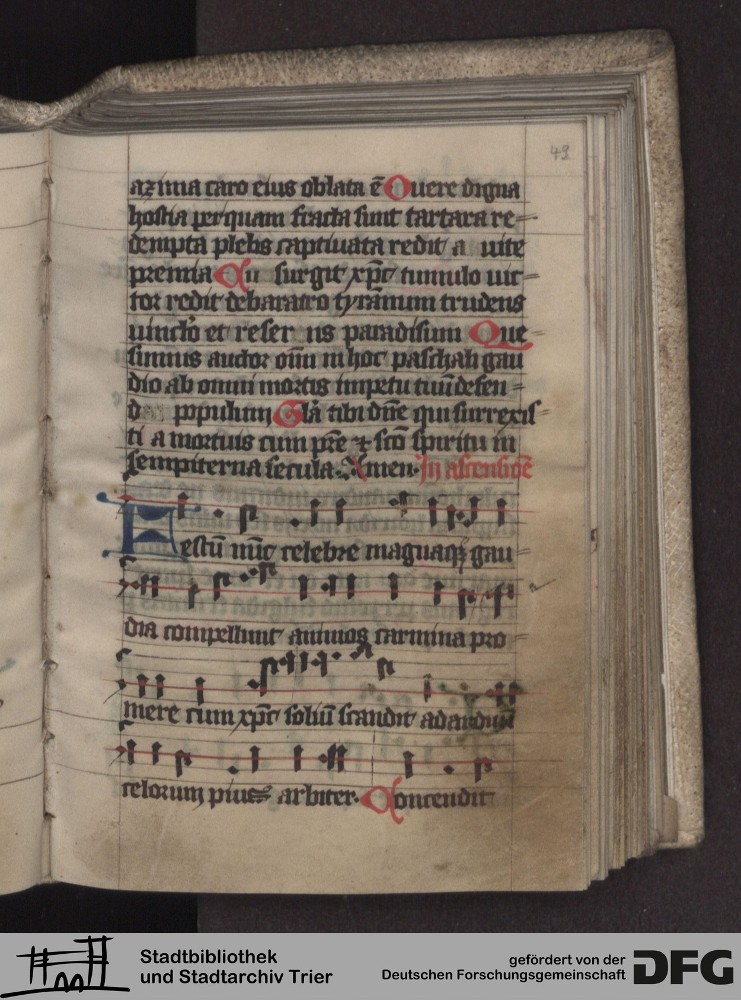 49
azima caro eius oblata ē Ouere digna
hostia per quam fracta sunt tartara re=
dempta plebs captiuata redit a uite
premia Cū surgit xp̄c tumulo uic=
tor redit debaratro tyrannum trudens
uinclo et reser ns paradisum Que=
sumus auctor om̄ in hoc paschali gau
dio ab omni mortis impetu tuū defen=
d populum Gl̄a tibi dn̄e qui surrexis
ti a mortuis cum pr̄e ⁊ sc̄o spiritu in
sempiterna secula. Amen. In ascensiōe
Festū nūc celebre magnaqȝ gau=
dia compellunt animos carmina pro=
mere cum xp̄c soliū scandit ad arduū
celorum pius arbiter. Concendit
Stadtbibliothek
und Stadtarchiv Trier
gefördert von der
Deutschen Forschungsgemeinschaft
DFG